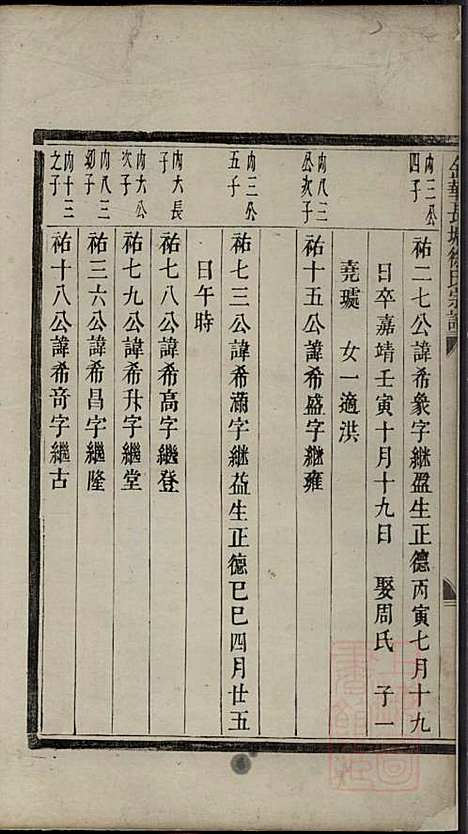 金華長塘徐氏宗譜
内三公四子
祐二七公諱希象字継盈生正德丙寅七月十九
日卒嘉靖壬寅十月十九日 娶周氏 子一
堯璇 女一適洪
内八三公次子
祐十五公諱希盛字継雍
内三公五子
祐七三公諱希滿字継益生正德巳巳四月廿五
日午時
内大長子
祐七八公諱希高字繼登
内大公次子
祐七九公諱希升字繼堂
内八三幼子
祐三六公諱希昌字繼隆
内十三之子
祐十八公諱希奇字繼古